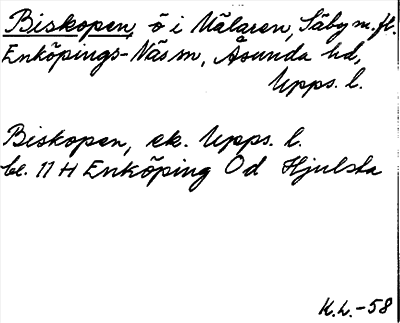 Biskopen, ö i Mälaren, Säby m. fl.
Enköpings-Näs sn, Åsunda hd,
Upps. l.
Biskopen, ek. Upps. l.
bl. 11 H Enköping 0 d Hjulsta
K.L.-58